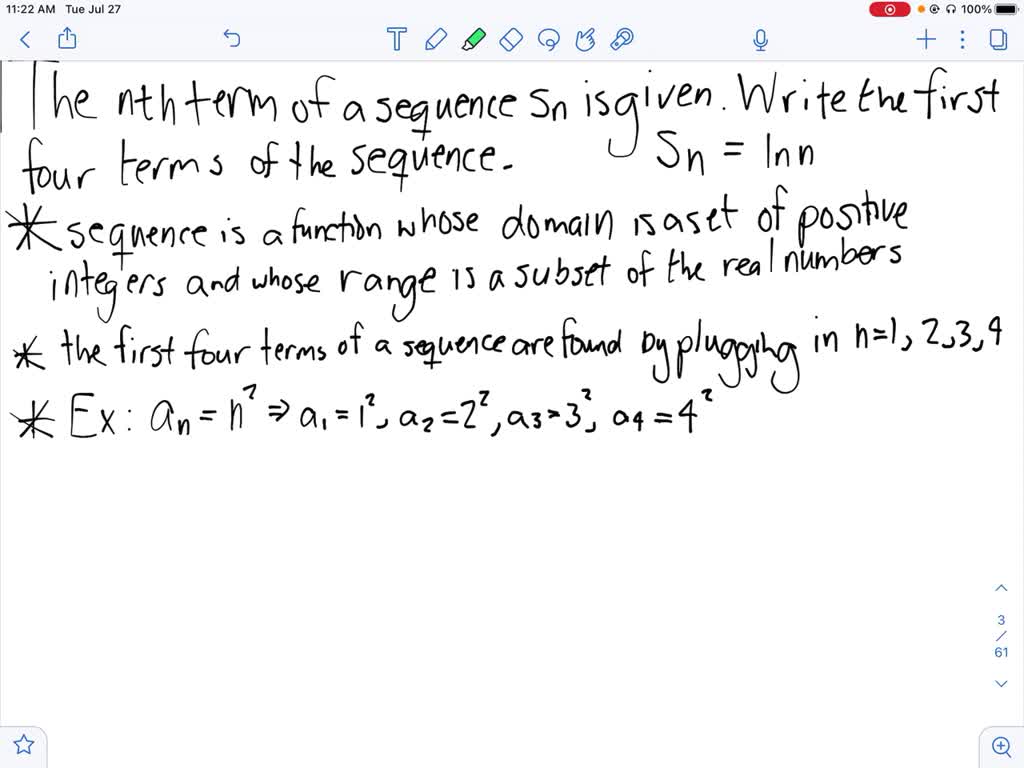 11:22 AM Tue Jul 27
100%
The nth term of a sequence Sn is given. Write the first
four terms of the sequence. Sn = ln n
* sequence is a function whose domain is a set of positive
integers and whose range is a subset of the real numbers
* the first four terms of a sequence are found by plugging in n=1, 2, 3, 4
* Ex: an = n² ⇒ a₁ = 1², a₂ = 2², a₃ = 3², a₄ = 4²
3
/
61